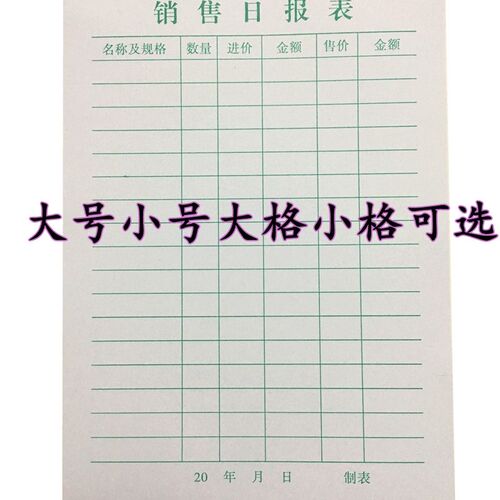 销售日报表
名称及规格 数量 进价 金额 售价 金额
大号小号大格小格可选
20 年 月 日 制表